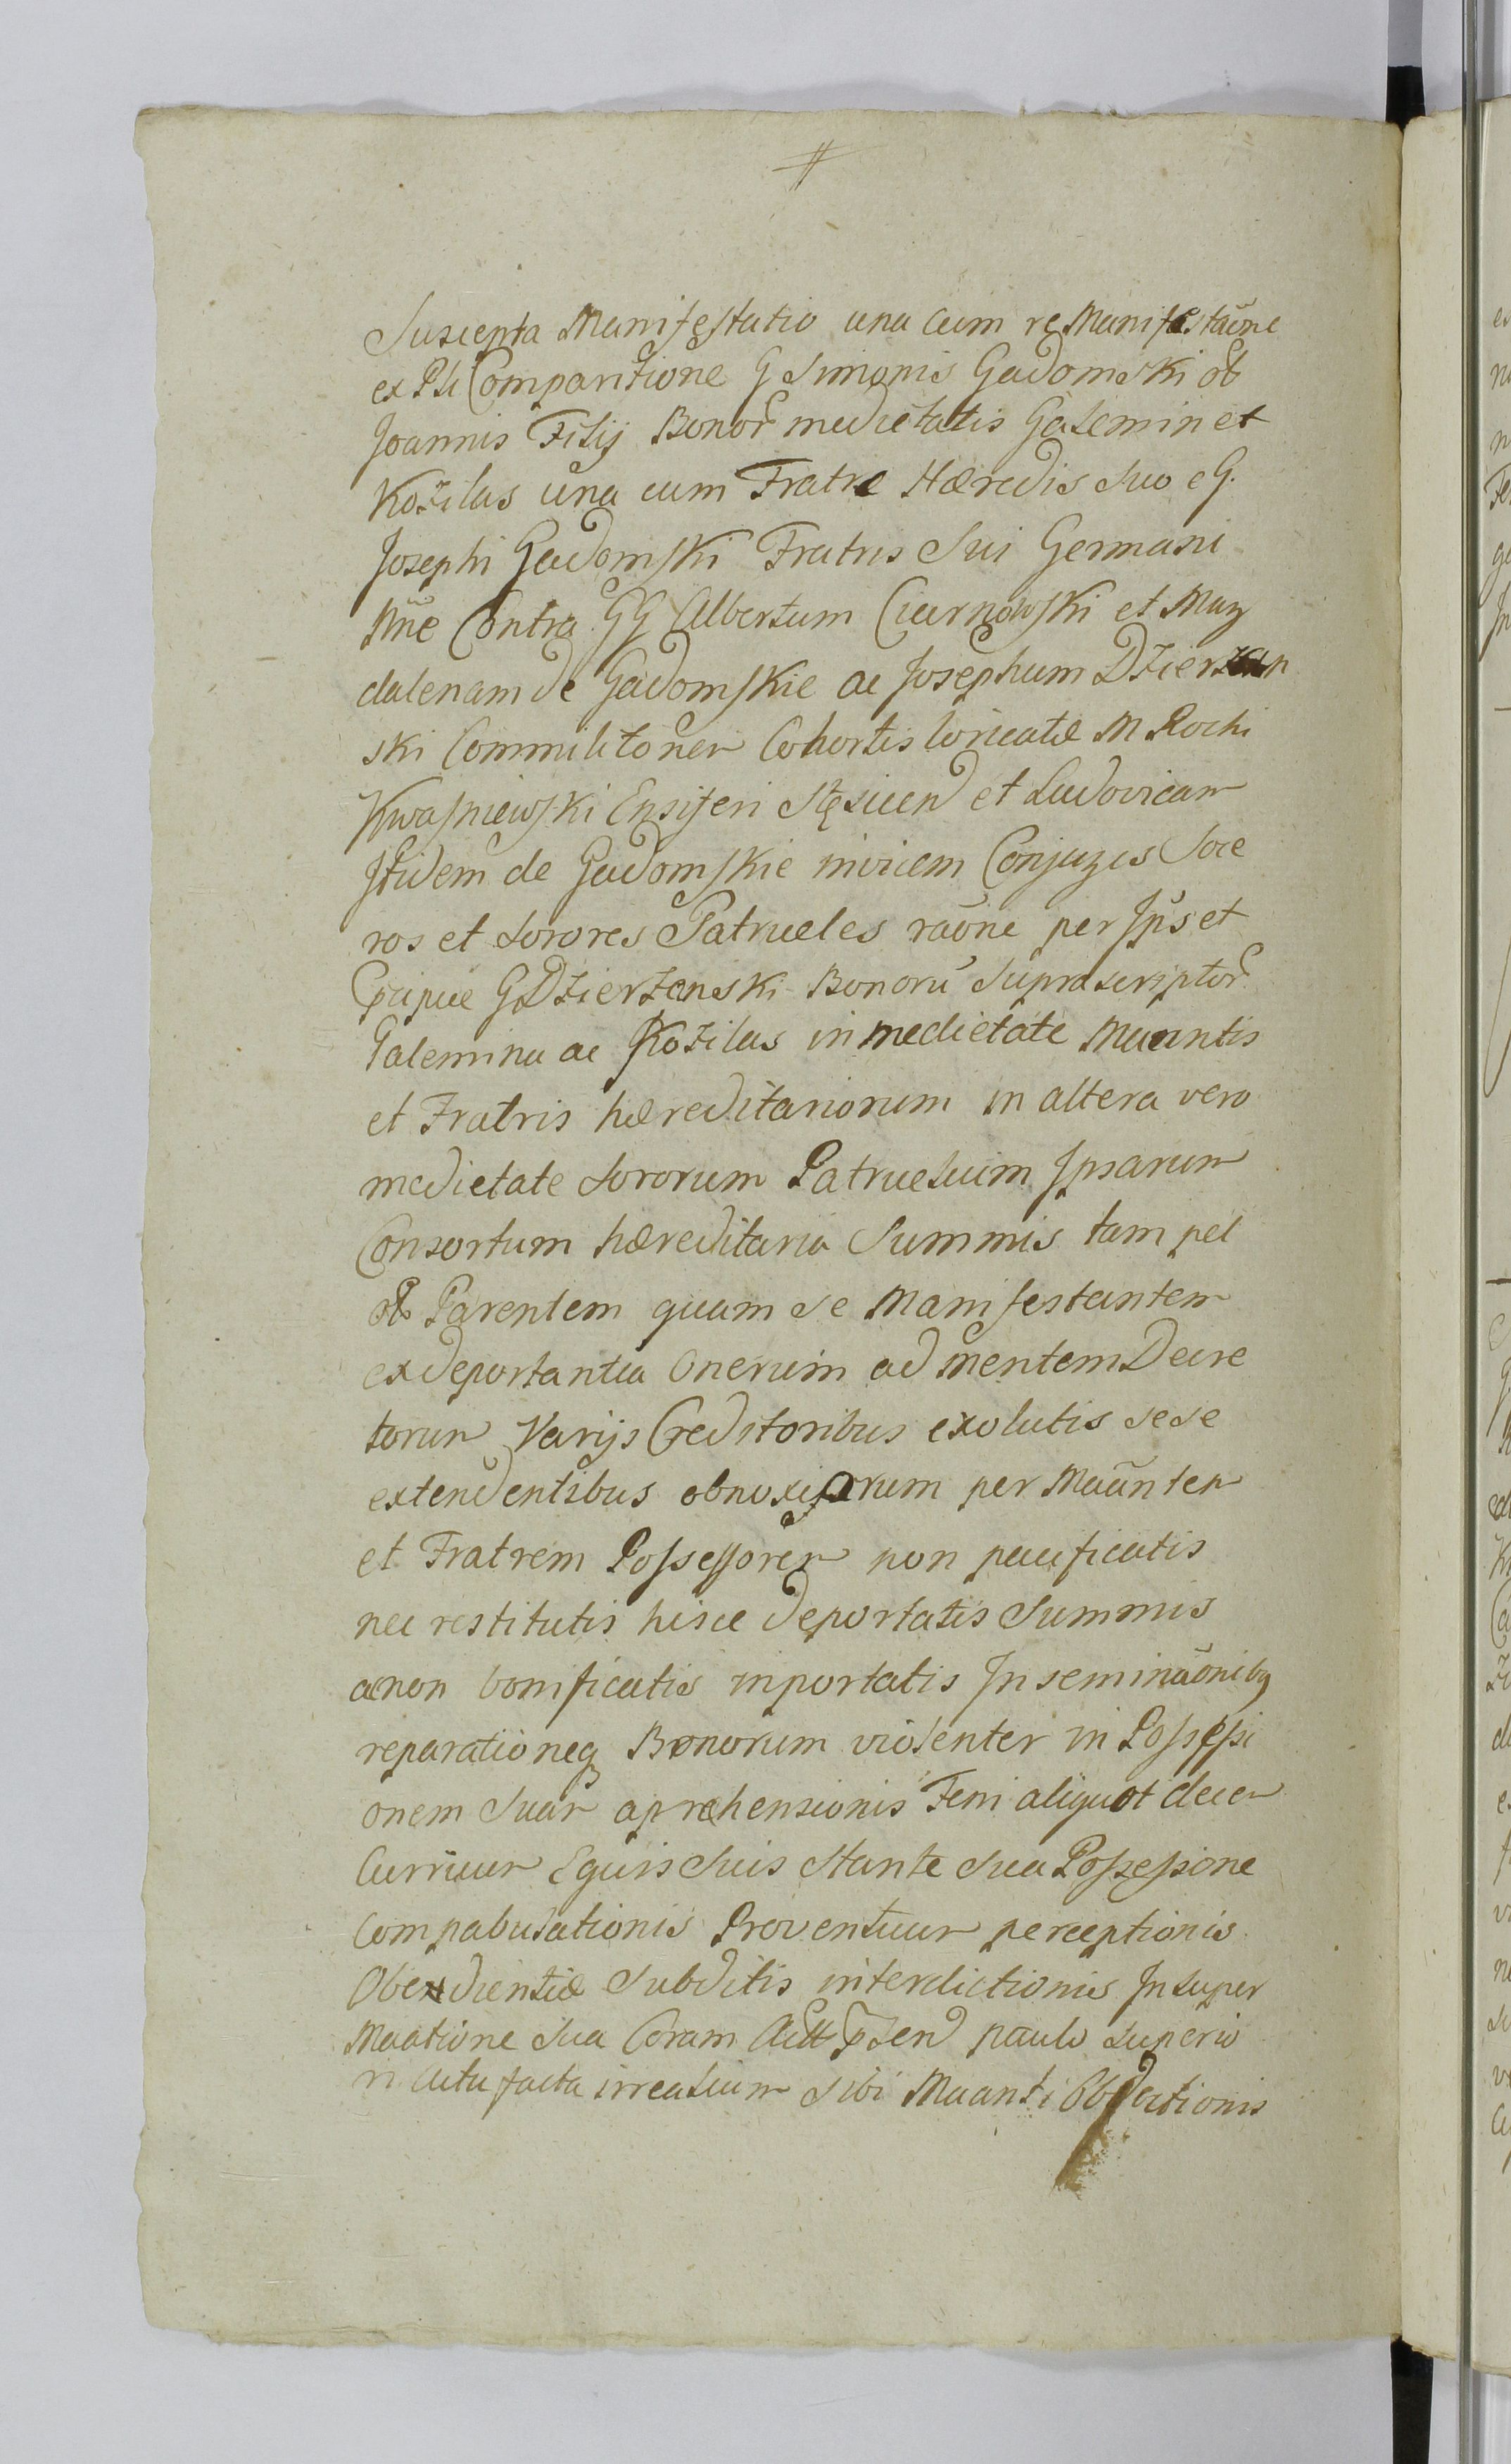 Suscepta Manifestatio una cum re Manifestãone
ex Pti Comparitione G Simonis Gadomski ol
Joannis Filij Bonor medietatis Galemin et
Kozilas una cum Fratre Hæredis Suo e G.
Josephi Gadomski Fratris Sui Germani
Nne Contra GG Albertum Ciarnowski et Mag
dalenam de Gadomskie ac Josephum Dzierzan
ski Commilitonem Cohortis loricatæ M Rochi
Kwasniewski Ensiferi Stęsicen et Ludovicam
Itidem de Gadomskie invicem Conjuges Soce
ros et Sorores Patrueles raõne per Ips et
Cpripue G Dzierzanski Bonorũ Supra scriptor
Galemina ac Kozilas in medietate Maantis
et Fratris hæreditariorum in altera vero
medietate Sororum Patruelium Ipsarum
Consortum hæreditaria Summis tam per
ol Parentem quam se Manifestantem
ex deportantia Onerum ad mentem Decre
torum Varijs Creditoribus exolutis sese
extendentibus obnoxiorum per Maãntem
et Fratrem Possessorem non pacificatis
nec restitutis hisce deportatis Summis
a non bonificatis inportatis Inseminãonibq
reparationeq Bonorum violenter in Possessi
onem Suam aprehensionis Feni aliquot decem
Curruum Equis Suis Stante Sua Possessione
Compabulationis Proventuum perceptionis
Obedientiæ Subditis interdictionis Insuper
Maatione Sua Coram Actt psen paulo Superio
ri Actu facta irrealium Sibi Maanti Obductionis